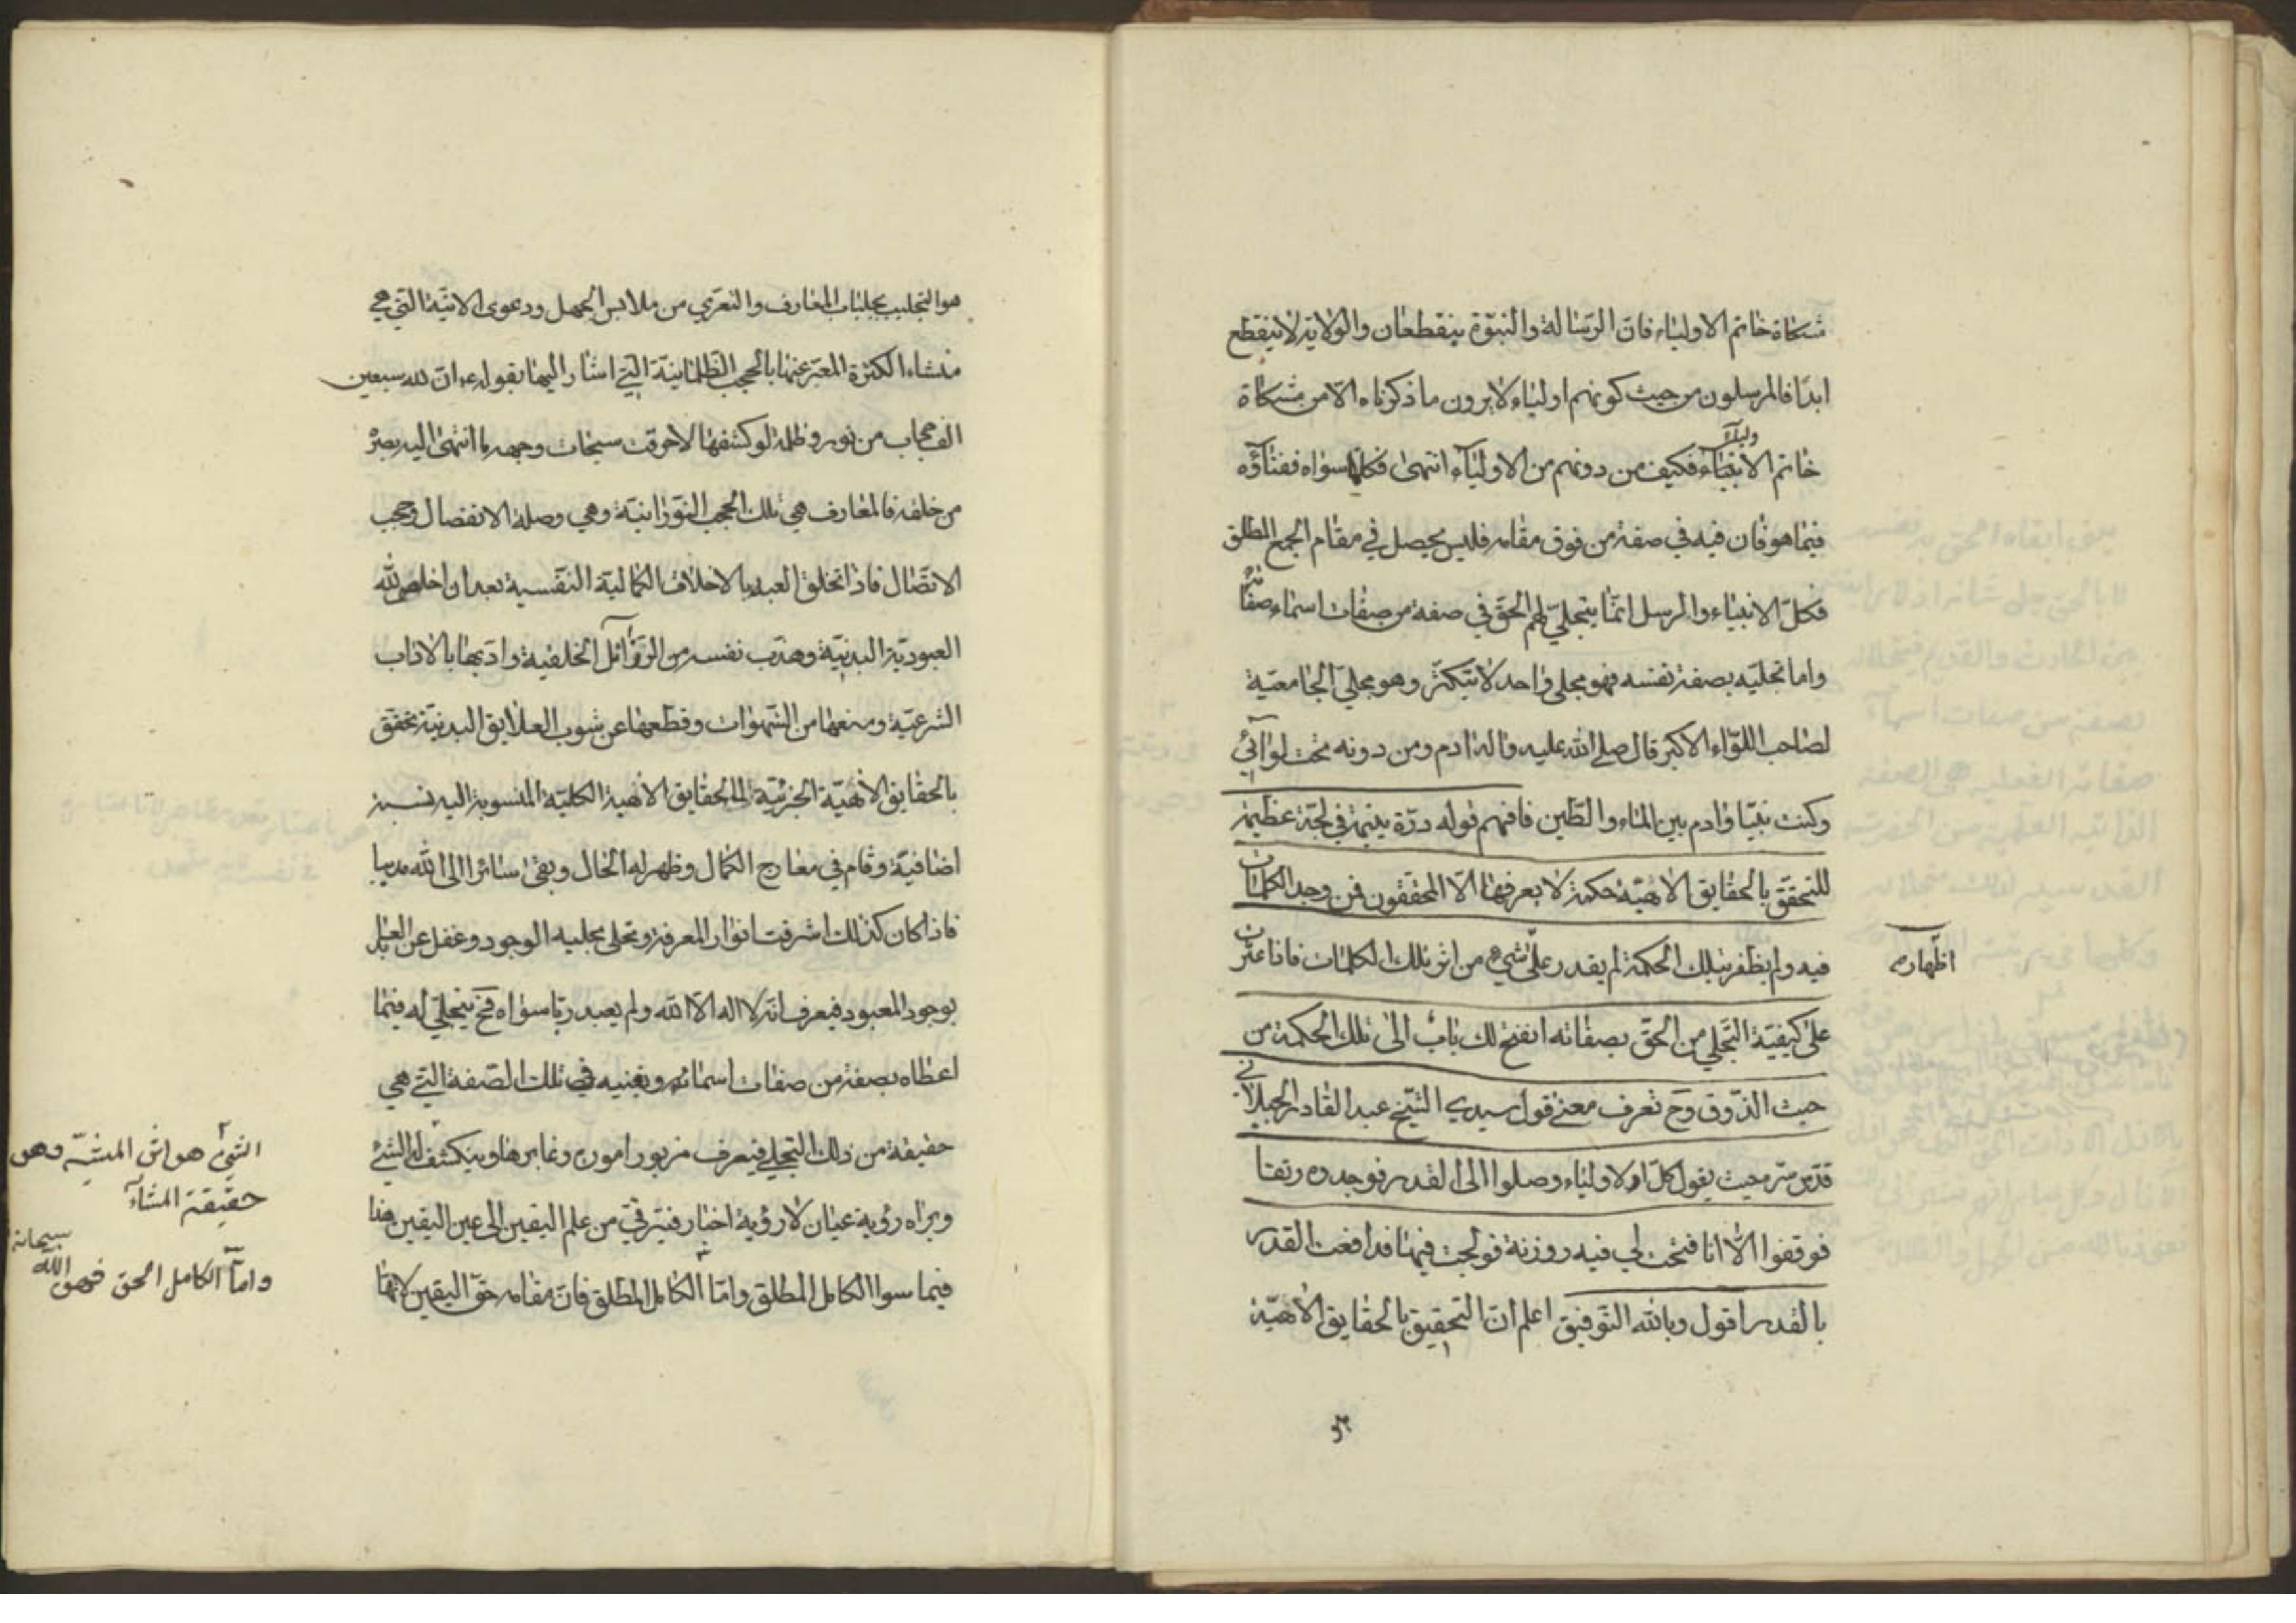 مشكاة خاتم الاولياء فان الرسالة والنبوة ينقطعان والولاية لا ينقطع
ابدا فالمرسلون من حيث كونهم اولياء لا يرون ما ذكرناه الا من مشكاة
ولياء
خاتم الانبياء فكيف من دونهم من الاولياء انتهى فكلما سواه ففناؤه
فيما هو فان فيه في صفة من فوق مقامه فليس يحصل في مقام الجمع المطلق
فكل الانبياء والمرسل انما يتجلي لهم الحق في صفة من صفات اسماء صفاته
واما تجليه بصفة نفسه فهو مجلى واحد لا يتكثر وهو مجلي الجامعية
لصاحب اللواء الاكبر قال صلى الله عليه واله ادم ومن دونه تحت لوائي
وكنت نبيا وادم بين الماء والطين فافهم قوله درة يتيمة في لجة عظيمة
للتحقق بالحقايق الالهية حكمة لا يعرفها الا المحققون فمن وجد الكلمات
فيه ولم يظفر بتلك الحكمة لم يقدر على شيء من اثر تلك الكلمات فانا عثرت
اظهاره
على كيفية التجلي من الحق بصفاته انفتح لك باب الى تلك الحكمة من
حيث الذوق وح تعرف معنى قول سيدي الشيخ عبد القادر الجيلاني
قدس سره حيث يقول كل الاولياء وصلوا الى القدر فوجدوه رتقا
فوقفوا الا انا فتحت لي فيه روزنة فولجت فيها فدافعت القدر
بالقدر اقول وبالله التوفيق اعلم ان التحقيق بالحقايق الالهية
هو التجلبب بجلباب المعارف والتعري من ملابس الجهل ودعوى الانية التي هي
منشاء الكثرة المعبر عنها بالحجب الظلمانية التي اشار اليها بقوله ع ان لله سبعين
الف حجاب من نور وظلمة لو كشفها لاحرقت سبحات وجهه ما انتهى اليه بصره
من خلقه فالمعارف هي تلك الحجب النورانية وهي وصلة الانفصال وحجب
الاتصال فاذا تخلق العبد بالاخلاق الكمالية النفسية بعد ان اخلص لله
العبودية البدنية وهذب نفسه من الرذائل الخلقية وادبها بالاداب
الشرعية ومنعها من الشهوات وقطعها عن شوب العلايق البدنية تحقق
بالحقايق الالهية الجزئية الى الحقايق الالهية الكلية المنسوبة اليه نسبة
اضافية وقام في معارج الكمال وظهر له الحال وبقى سائرا الى الله
فاذا كان كذلك اشرقت انوار المعرفة وتجلى بجلبة الوجود وغفل عن العابد
بوجود المعبود فيعرف انه لا اله الا الله ولم يعبد ربا سواه فح يتجلي له فيما
اعطاه بصفة من صفات اسمائه ويغنيه في تلك الصفة التي هي
حقيقة من ذلك التجلي فيعرف مزبور امون وغابرها وينكشف له الشئ
ويراه رؤية عيان لا رؤية اخبار فيترقى من علم اليقين الى عين اليقين هذا
فيما سوا الكامل المطلق واما الكامل المطلق فان مقامه حق اليقين لانها
الشئ هو اثر المشية وهو
حقيقة المشاء
واما الكامل الحق فهو الله سبحانه